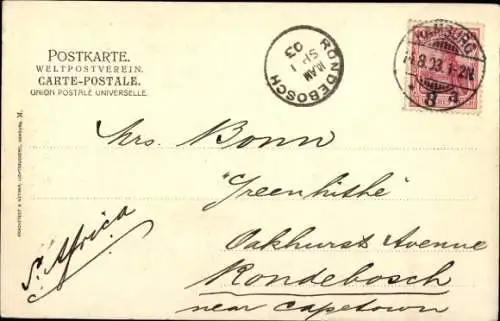 POSTKARTE.
WELTPOSTVEREIN.
CARTE-POSTALE.
UNION POSTALE UNIVERSELLE.
RONDEBOSCH
SP 1
03
HAMBURG
8.03.
8 d
Mrs. Bonn
"Greenhithe"
Oakhurst Avenue
Rondebosch
near Capetown
S. Africa